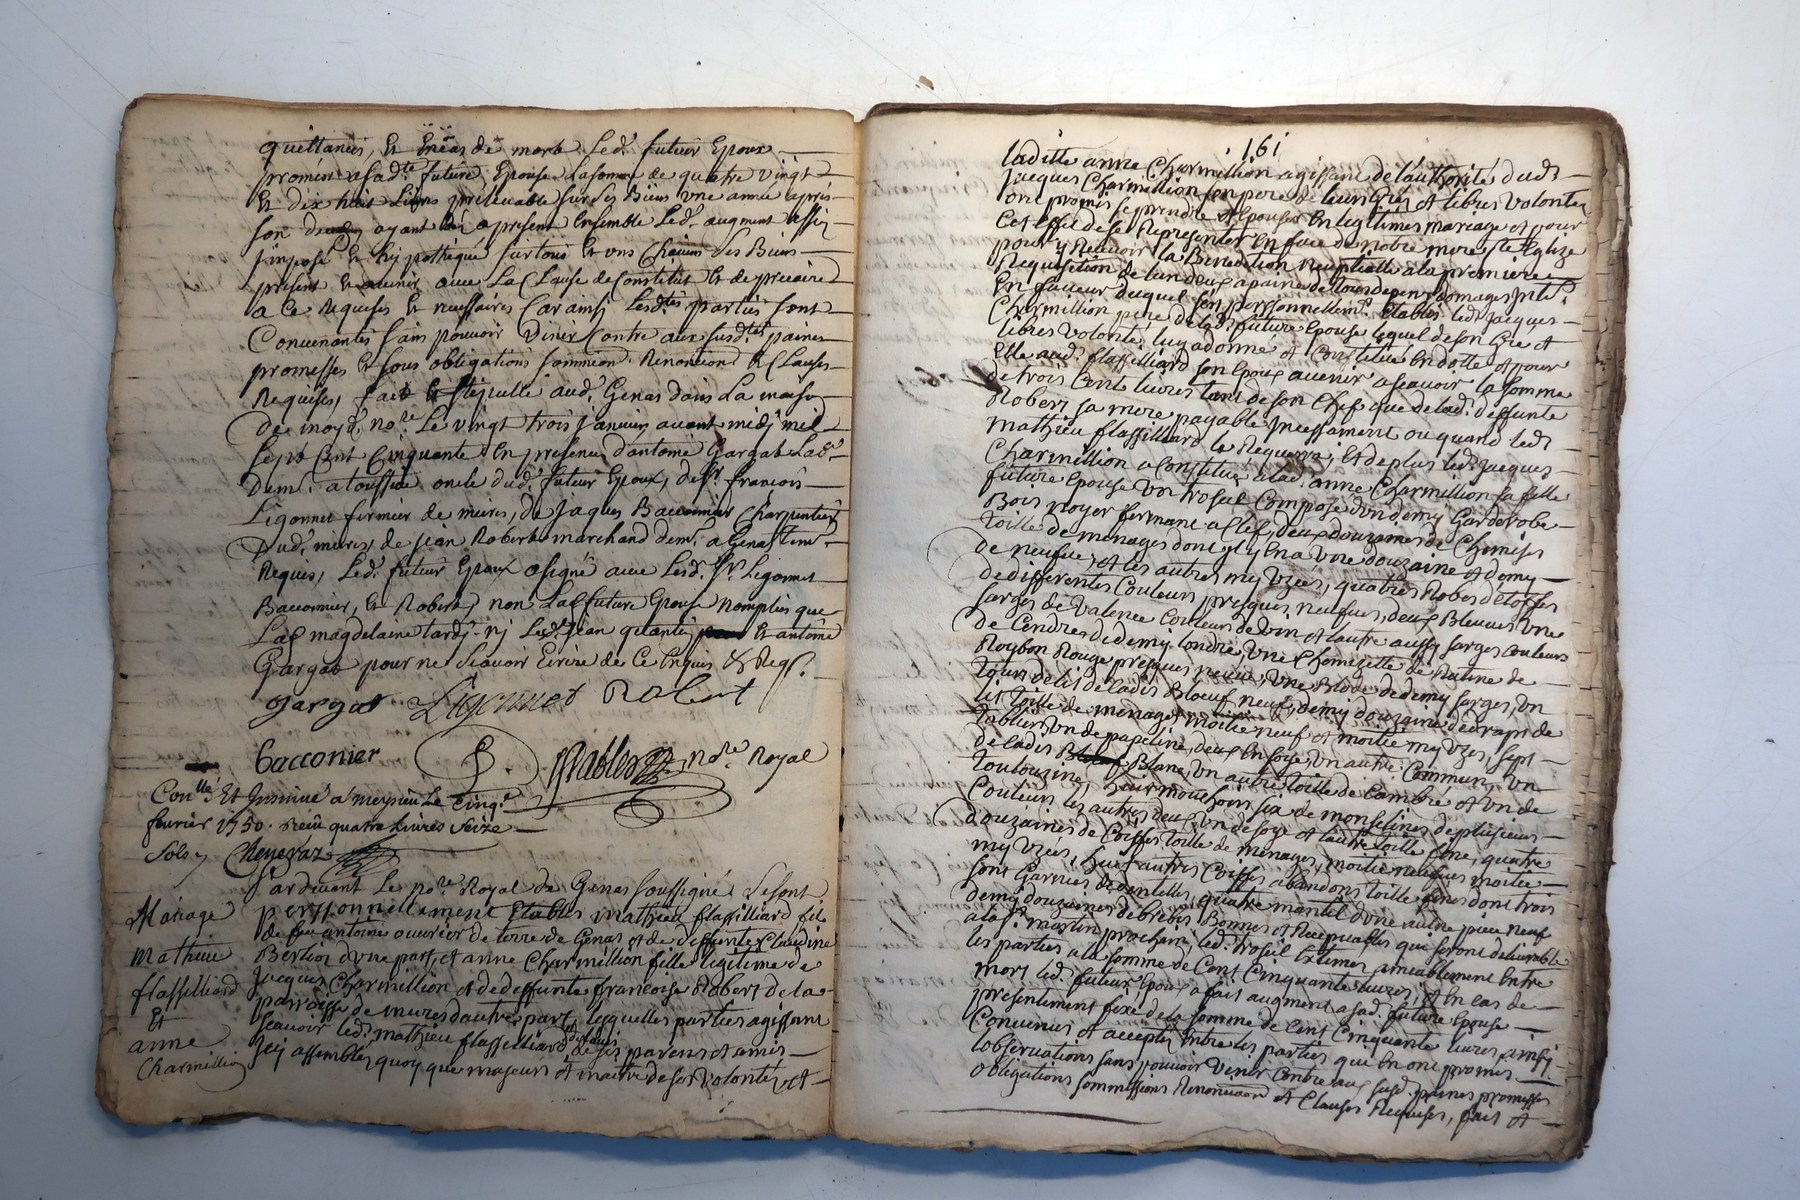 quittances, Et En cas de mort Led. futur Epoux
promis a sad.te future Epouse La somme de quatre vingt
Et dix huit Livres prélevable sur ses Biens une année après
son decès ayant des a present Ensemble Led. augment assis
imposé Et hypothéqué sur tous Et uns Chacuns ses Biens
présent Et avenir avec La Clause de Constitut Et de précaire
a Ce Requises Et necessaires Car ainsy Lesd.tes parties sont
Convenantes sans pouvoir Venir Contre aux susd.tes paines
promesses Et sous obligations soumission Renontiond. & Clauses
Requises, fait Et stipullé aud. Genas dans La maison
De moyd. no.re Le vingt trois Janvier avant midy mil
sept Cent Cinquante En présence d'antoine Gargat Lab.r
Dem. a toussieu oncle dud. futur Epoux, de s.r françois
Ligonnet fermier de mures, de Jaques Bacconnier Charpentier
Dud. mures, de jean Robert marchand dem. a Genas tem.
Requis, Led. futur Epoux a signé avec Lesd. s.r Ligonnet
Bacconier, Et Robert, non Lad future Epouse non plus que
Lad magdelaine tardy ny Led. jean Et antoine
Gargat pour ne scavoir Ecrire de Ce Enquis & Req.s
Gargat Ligonnet Robert
bacconier nore Royal
Con.llé Et Insinué a meysieu Le Cinq.e
fevrier 1750. Reçu quatre Livres seize
sols Cheneraz
Pardevant Le no.re Royal de Genas soussigné Le sont
Mariage
personnellement Etablis mathieu flassilliard fils
de feu antoine ouvrier de terre de Genas et de deffunte Claudine
mathieu
Berlior d'une part, et anne Charmillion fille legitime de
flassilliard
Jacques Charmillion et de deffunte francoise Robert de la
Et
parroisse de mures d'autre part, lesquelles parties agissant
anne
scavoir led. mathieu flassilliard de l'avis de ses parens et amis
Charmillion
icy assemblés quoy que majeur et maitre de ses volontés, et
161
laditte anne Charmillion agissant de l'authorité dud.
Jacques Charmillion son pere de leurs Grés et libres volontés
ont promis se prendre et Epouser En legitimes mariage et pour
Cet effet de se Representer En face de notre mere S.te Eglize
pour y Recevoir la Benediction nuptialle a la premiere
Requisition de l'un deux a paine de tous depens domages Inte.s
En faveur duquel s'est personnellem.t Etablis led. Jacques
Charmillion pere de lad. future Epouse lequel de son Gré et
libres volonté luy a donné et Constitué En dotte et pour
Elle aud. flassilliard son Epoux avenir a scavoir la somme
de trois Cents livres tant de son Chef que de lad. deffunte
Robert sa mere payable Incessament ou quand led.
mathieu flassilliard le Requerra, Et de plus led. Jacques
Charmillion a Constitué a lad. anne Charmillion sa fille
future Epouse un trosel Composé d'un demy Garderobe
Bois noyer fermant a Clef, deux douzaines de Chemises
toille de menages dont yl y En a une douzaine et demy
de neufve, et les autres my uzées, quatre Robes d'etoffes
de differentes Couleurs presques neufves, deux Bleuves une
sarges de Valence Couleurs de vin et l'autre aussy sarges Couleurs
de Cendres de demy londre, une Chemizette de Ratine de
Roybon Rouge presques neuve, une de demy sarges, un
tours de lit de Cadis Bloeuf neuf, demy douzaine de draps de
lit toille de menages moitié neuf et moitié my uzés, sept
tabliers un de papeline, deux En soye, un autre Commun, un
de Cadis Blanc, un autre toille de Cambré et un de
toulouzine, huit mouchoirs six de monselines de plusieurs
Couleurs les autres deux un de soye et l'autre toille fine, quatre
douzaines de Coiffes toille de menages, moitié neufves moitié
my uzées, huit autres Coiffes a bandons toille fines dont trois
sont Garnies de dentelles, quatre mantil d'une autre piece neuf
demy douzaines de brebis Bonnes et Recepvables que seront delivrable
a la s.t martin prochain, led. trosel Extimer amiablement Entre
les parties a la somme de Cent Cinquante livres, et En cas de
mort led. futur Epoux a fait augment a sad. future Epouse
presentement fixé de la somme de Cent Cinquante livres ainsy
Convenus et accepté Entre les parties qui En ont promis
l'observations sans pouvoir venir Contre aux susd. paines promesses
obligations sommissions Renontiaon et Clauses Requises, fait et